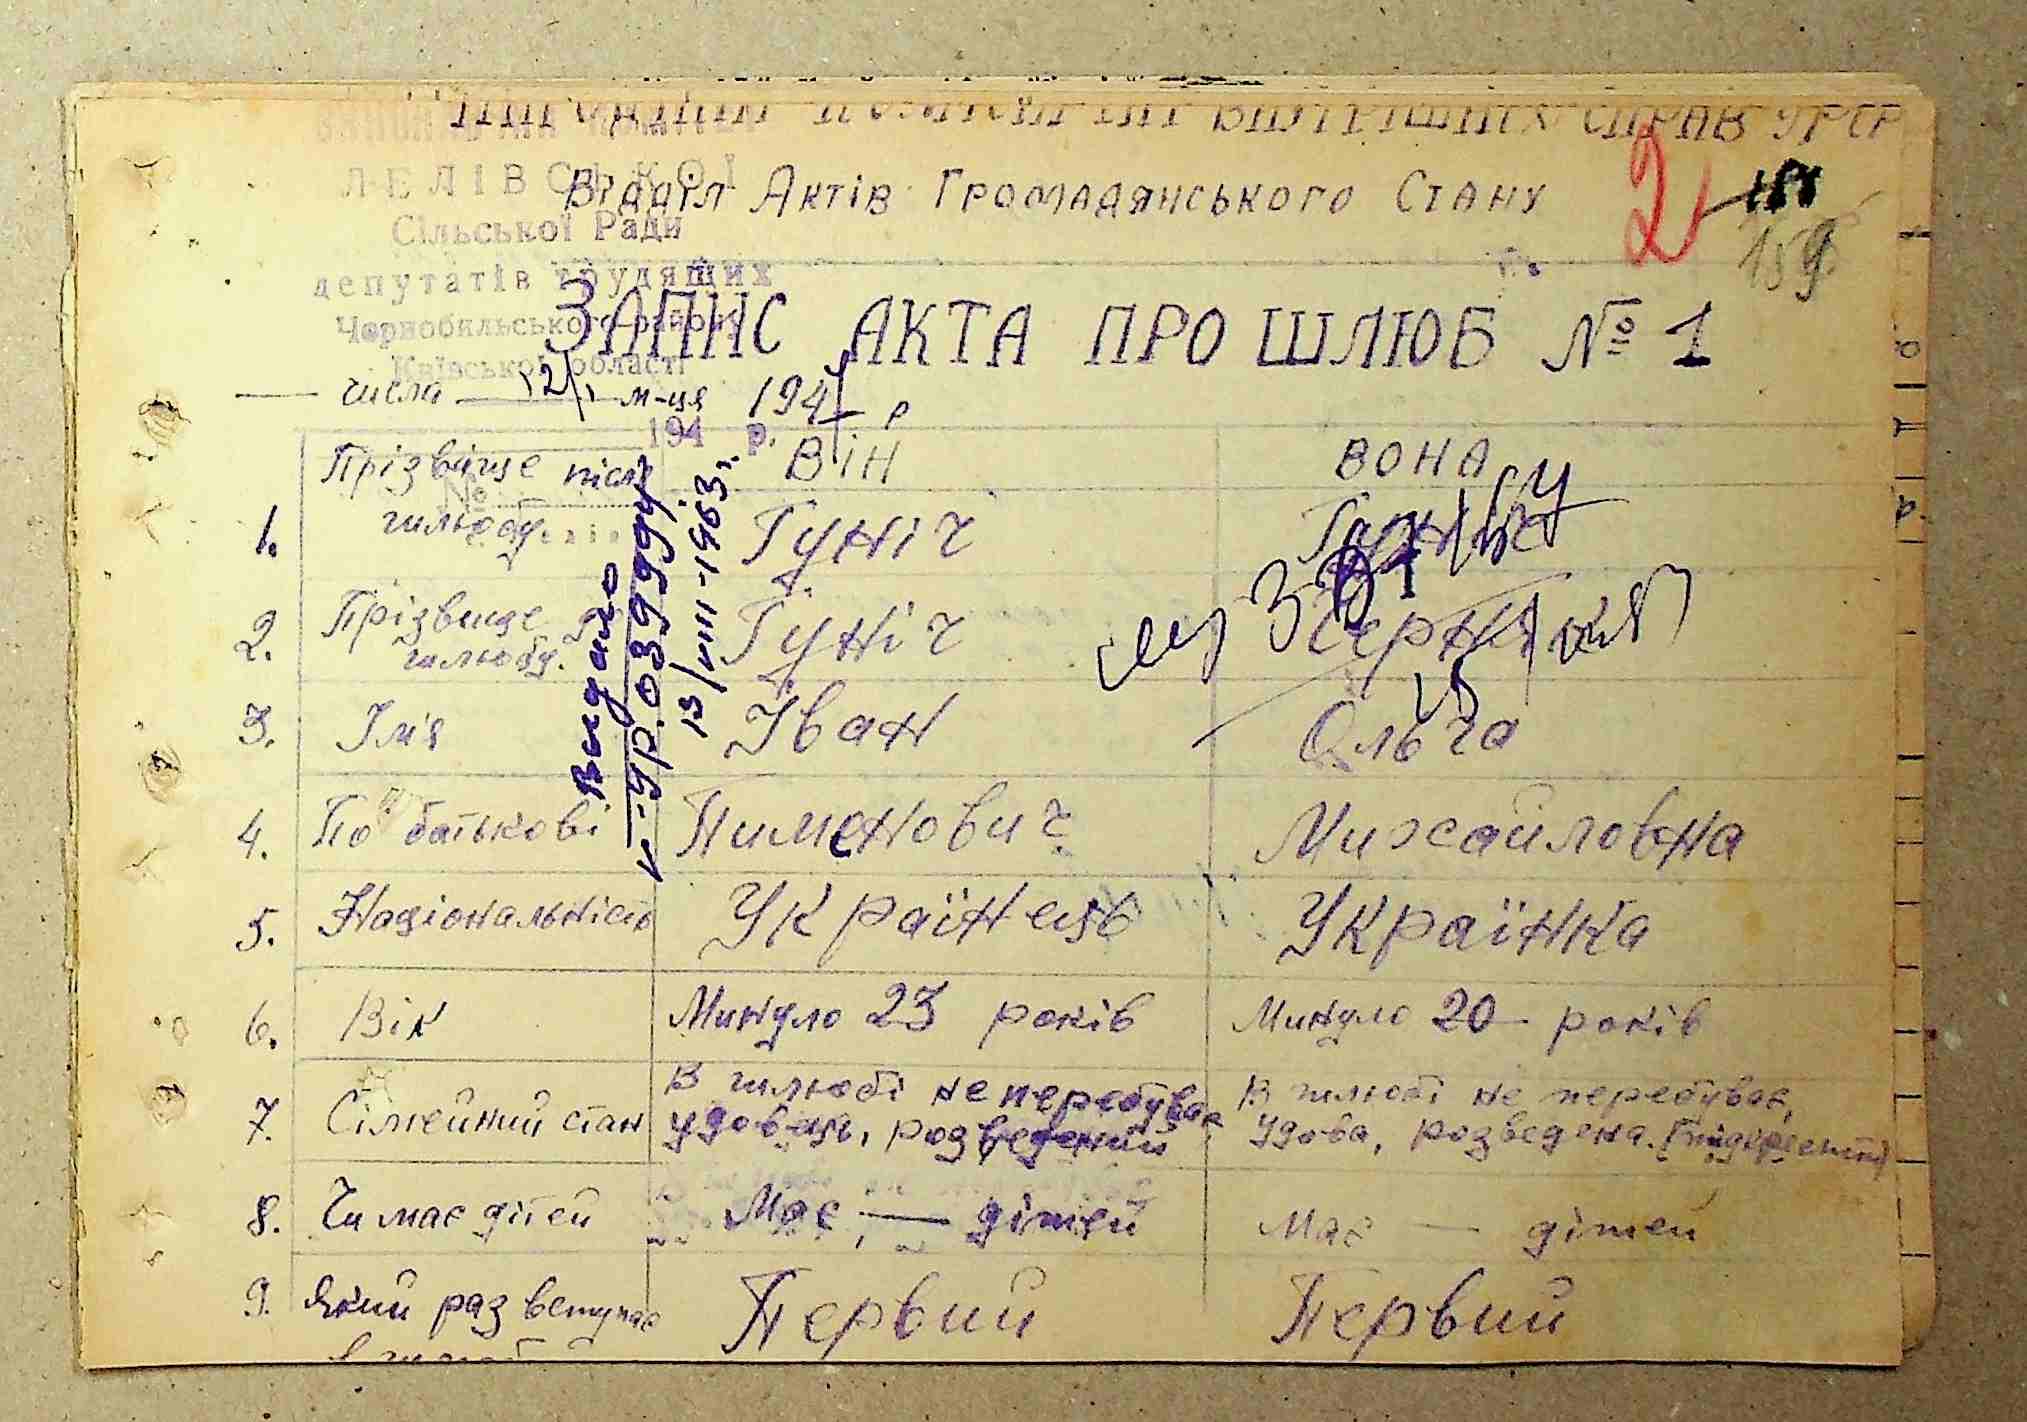 НАРОДНИЙ КОМІСАРІАТ ВНУТРІШНІХ СПРАВ УРСР
ЛЕЛІВСЬКОЇ
Сільської Ради
депутатів трудящих
Чорнобильського району
Київської області
194 р.
№
Відділ Актів Громадянського Стану
2
159
ЗАПИС АКТА ПРО ШЛЮБ № 1
числа 12/І м-ця 194 р
ВІН ВОНА
1. Прізвище після шлюбу Гуніч
2. Прізвище до шлюбу. Гуніч
3. Ім'я Іван Ольга
4. По батькові Пименович Михайловна
5. Національність Українець Українка
6. Вік Минуло 23 років Минуло 20 років
7. Сімейний стан В шлюбі не перебував В шлюбі не перебував,
удовець, розведений удова, розведена. (підкреслити)
8. Чи має дітей Має — дітей Має — дітей
9. Який раз вступає Первий Первий
в шлюб
Видано
УР. 039994
13/VIII-1963г.